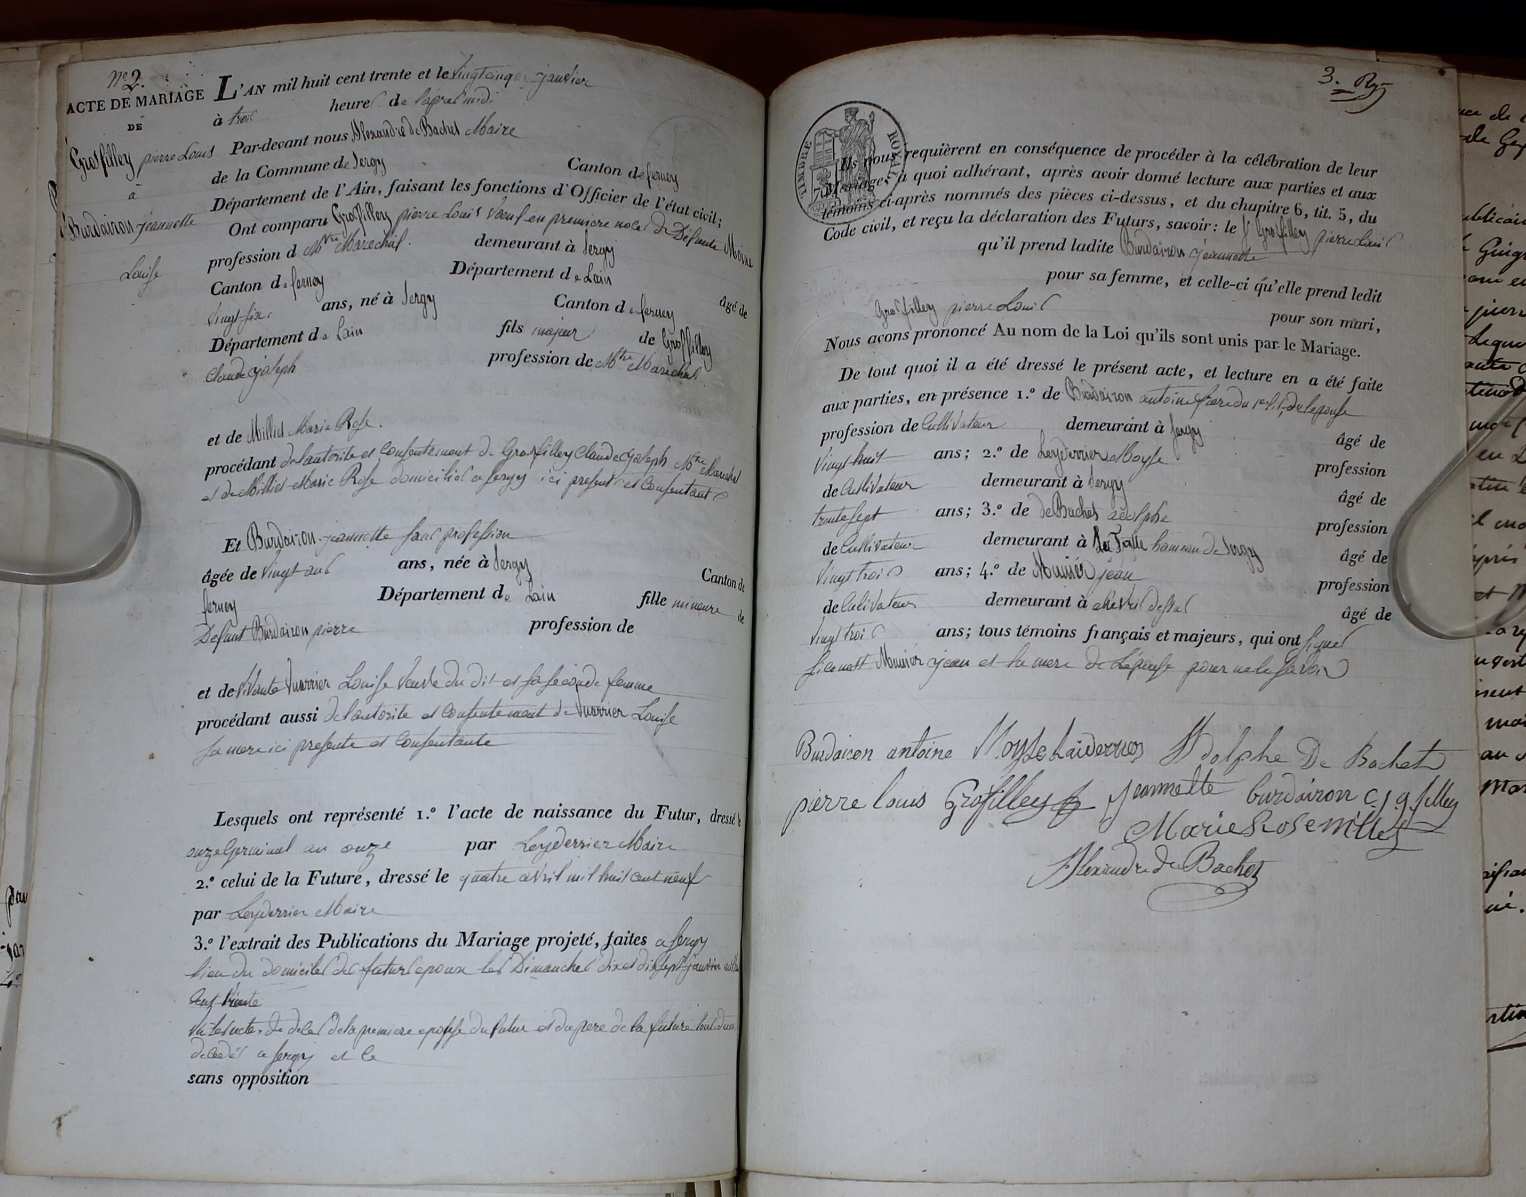 N.º 2.
ACTE DE MARIAGE
DE
Grosfilley pierre Louis
à
Burdairon jeannette
Louise
L'AN mil huit cent trente et le vingt cinq janvier
à trois heures de lapres midi
Par-devant nous Alexandre de Bachet Maire
de la Commune de Sergy Canton de ferney
Département de l'Ain, faisant les fonctions d'Officier de l'état civil;
Ont comparu Grosfilley pierre Louis Veuf en premiere noces de Défunte Moine
profession de M.tre Maréchal demeurant à Sergy
Canton de ferney Département de Lain âgé de
vingt six ans, né à Sergy Canton de ferney
Département de Lain fils majeur de Grosfilley
Claude joseph profession de M.tre Maréchal
et de Milliet Marie Rose.
procédant de lautorite et Consentement de Grosfilley Claude joseph M.tre Marechal
et de Milliet Marie Rose domiciliés a Sergy ici presents et Consentants
Et Burdairon jeannette sans profession
âgée de vingt ans ans, née à Sergy Canton de
ferney Département de Lain fille mineure de
Defunt Burdairon pierre profession de
et de vivante Vuarrier Louise Veuve du dit et sa seconde femme
procédant aussi de lautorite et Consentement de Vuarrier Louise
sa mere ici presente et Consentante
Lesquels ont représenté 1.º l'acte de naissance du Futur, dressé le
onze Germinal an onze par Leyderrier Maire
2.º celui de la Future, dressé le quatre avril mil huit cent neuf
par Leyderrier Maire
3.º l'extrait des Publications du Mariage projeté, faites a Sergy
lieu du domicile des futurs epoux les Dimanches dix et dix sept janvier mil huit
cent trente
Vu les actes de décés de la premiere epouse du futur et du pere de la future tout deux
décédés a Sergy et le
sans opposition
3.
TIMBRE ROYAL
Ils nous requièrent en conséquence de procéder à la célébration de leur
Mariage; à quoi adhérant, après avoir donné lecture aux parties et aux
témoins ci-après nommés des pièces ci-dessus, et du chapitre 6, tit. 5, du
Code civil, et reçu la déclaration des Futurs, savoir: le S.r Grosfilley pierre Louis
qu'il prend ladite Burdairon jeannette
pour sa femme, et celle-ci qu'elle prend ledit
Grosfilley pierre Louis pour son mari,
Nous avons prononcé Au nom de la Loi qu'ils sont unis par le Mariage.
De tout quoi il a été dressé le présent acte, et lecture en a été faite
aux parties, en présence 1.º de Burdairon antoine frere du 1er lit, de lepouse
profession de Cultivateur demeurant à Sergy âgé de
vingt huit ans; 2.º de Leyderrier Moyse profession
de Cultivateur demeurant à Sergy âgé de
trente sept ans; 3.º de de Bachet adolphe profession
de Cultivateur demeurant à hameau de Sergy âgé de
vingt trois ans; 4.º de Munier jean profession
de Cultivateur demeurant à chevri dessus âgé de
vingt trois ans; tous témoins français et majeurs, qui ont signés
Munier jean et la mere de Lépouse pour ne le savoir
Burdairon antoine Moyse Laiderrier Adolphe De Bachet
pierre louis Grosfilley jeannette burdairon c j g filley
Marie Rose millet
Alexandre de Bachet